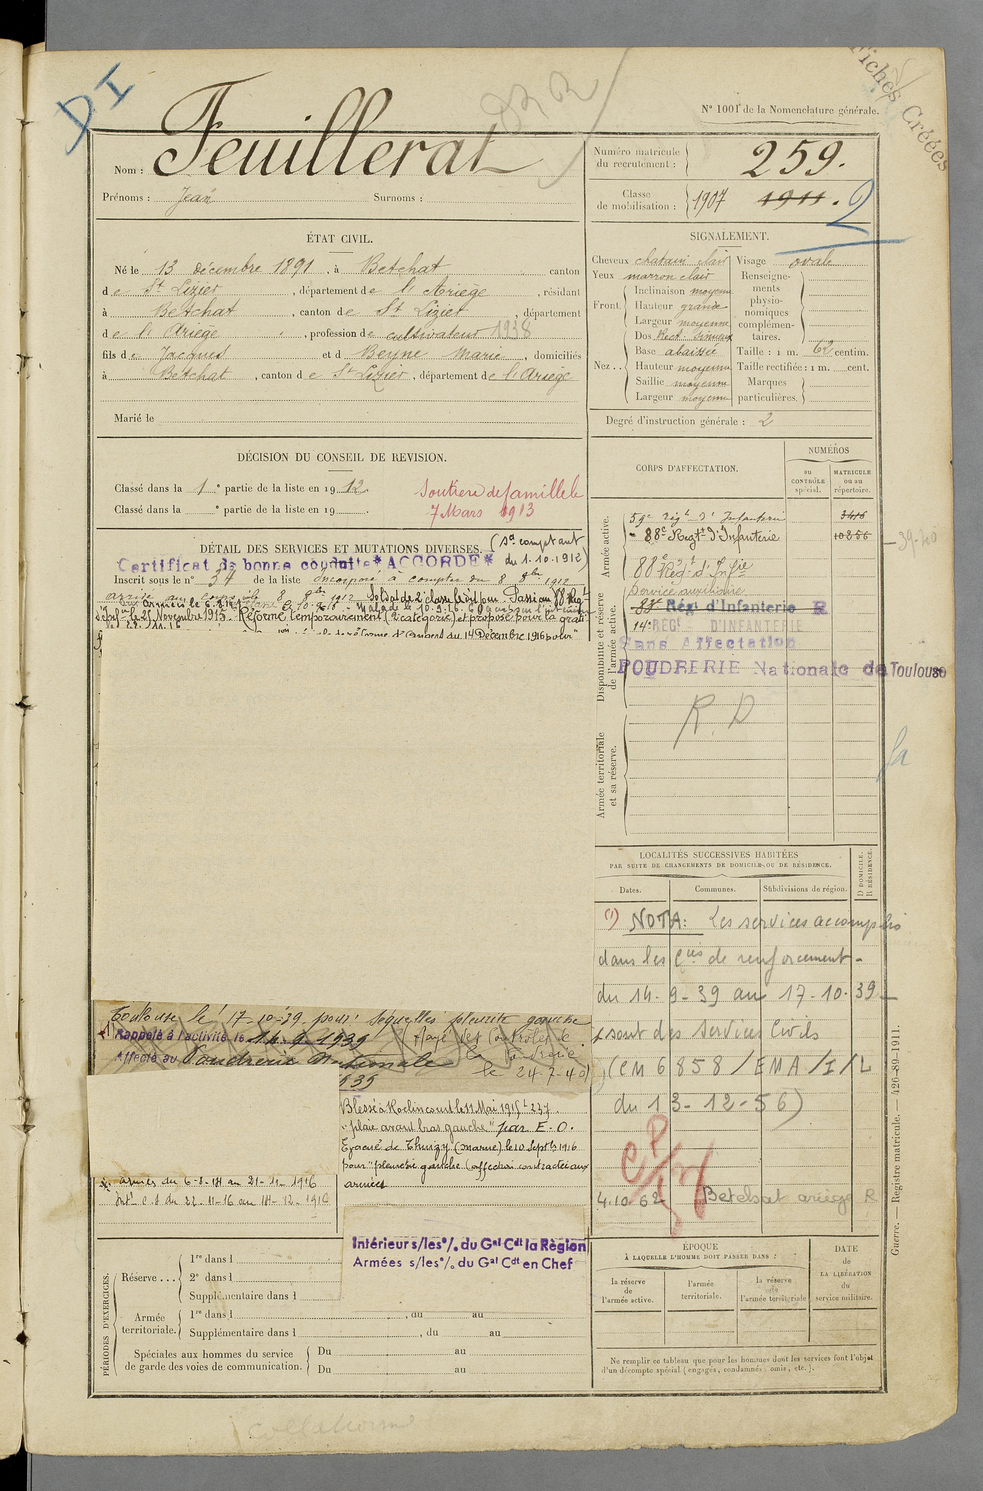 DI
Fiches Créées
N° 1001 de la Nomenclature générale.
Nom : Feuillerat
Prénoms : Jean Surnoms :
Numéro matricule du recrutement : 259.
Classe de mobilisation : 1907 1911. 2
ÉTAT CIVIL.
Né le 13 décembre 1891, à Betchat, canton
de St Lizier, département de l'Ariège, résidant
à Betchat, canton de St Lizier, département
de l'Ariège, profession de cultivateur 1938
fils de Jacques et d Beyne Marie, domiciliés
à Betchat, canton de St Lizier, département de l'Ariège
Marié le
SIGNALEMENT.
Cheveux chatain clair
Yeux marron clair
Front Inclinaison moyenne
Hauteur grande
Largeur moyenne
Nez Dos Rect. sinueux
Base abaissée
Hauteur moyenne
Saillie moyenne
Largeur moyenne
Visage ovale
Renseignements physionomiques complémentaires.
Taille : 1 m. 62 centim.
Taille rectifiée : 1 m. cent.
Marques particulières.
Degré d'instruction générale : 2
DÉCISION DU CONSEIL DE REVISION.
Classé dans la 1e partie de la liste en 1912
Classé dans la e partie de la liste en 19
Soutien de famille le
7 Mars 1913
DÉTAIL DES SERVICES ET MUTATIONS DIVERSES.
(St comptant du 1.10.1912)
Certificat de bonne conduite *ACCORDÉ*
Inscrit sous le n° 34 de la liste Incorporé à compter du 8 8bre 1912
arrivé au corps le 8 8bre 1912 Soldat de 2e classe ledit jour. Passé au 88 Régt
Inf. le 25 Novembre 1915. Réformé temporairement (2e catégorie) et proposé pour la grat
14 Décembre 1916
CORPS D'AFFECTATION.
NUMÉROS
au CONTRÔLE spécial.
MATRICULE ou au répertoire.
Armée active.
59e Régt d'Infanterie 3416
88e Régt d'Infanterie 10856
39-40
Disponibilité et réserve de l'armée active.
88e Régt d'Infie
Service auxiliaire
Régt d'Infanterie R
14e RÉGt D'INFANTERIE
Sans Affectation
POUDRERIE Nationale de Toulouse
Armée territoriale et sa réserve.
R. D
LOCALITÉS SUCCESSIVES HABITÉES
PAR SUITE DE CHANGEMENTS DE DOMICILE OU DE RÉSIDENCE.
Dates.
Communes.
Subdivisions de région.
D DOMICILE. R RÉSIDENCE.
(1) NOTA: Les services accomplis
dans les Cies de renforcement
du 14-9-39 au 17-10-39
sont des Services Civils
(CM 6858/EMA/1/L
du 13-12-56)
4.10.62 Betchat ariège R
Toulouse le 17-10-39 pour séquelles pleurite gauche
Rappelé à l'activité le 14-9-1939 Rayé des Contrôles de
Affecté au Poudrerie Nationale la Poudrerie
le 24-7-40
Blessé à Roclincourt le 11 Mai 1915
"plaie avant bras gauche" par E.O.
Evacué de Thuizy (marne) le 10 Septbre 1916
pour "pleurésie gauche" (affection contractée aux
armées
armées du 6-8-14 au 21-11-1916
Intr C.S. du 22-11-16 au 14-12-1916
Intérieur s/les o/. du Gal Cdt la Région
Armées s/les o/. du Gal Cdt en Chef
PÉRIODES D'EXERCICES.
Réserve
1re dans l
2e dans l
Supplémentaire dans l
Armée territoriale.
1re dans l , du au
Supplémentaire dans l , du au
Spéciales aux hommes du service de garde des voies de communication.
Du au
Du au
ÉPOQUE
À LAQUELLE L'HOMME DOIT PASSER DANS :
la réserve de l'armée active.
l'armée territoriale.
la réserve de l'armée territoriale
DATE de LA LIBÉRATION du service militaire.
Ne remplir ce tableau que pour les hommes dont les services font l'objet
d'un décompte spécial (engagés, condamnés, omis, etc.).
Guerre. — Registre matricule. — 426-89-1911.